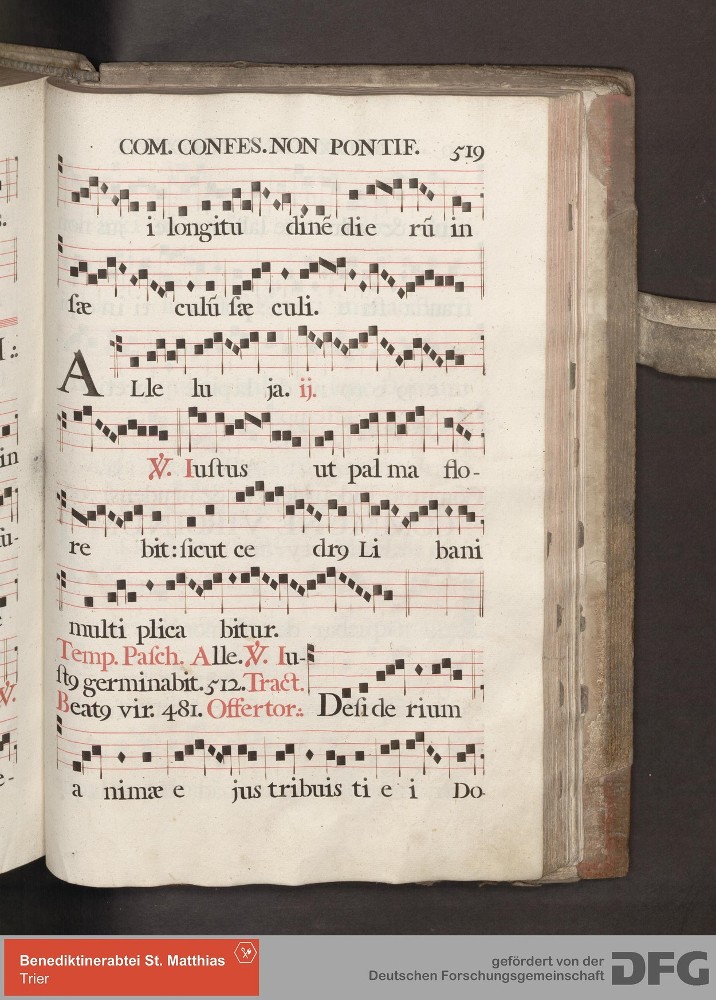 COM. CONFES. NON PONTIF. 519
i longitu dinẽ die rũ in
ſæ culũ ſæ culi.
A Lle lu ja. ij.
℣. Iuſtus ut pal ma flo-
re bit: ſicut ce drꝯ Li bani
multi plica bitur.
Temp. Paſch. Alle. ℣. Iu-
ſtꝯ germinabit. 512. Tract.
Beatꝯ vir. 481. Offertor.: Deſi de rium
a nimæ e jus tribuis ti e i Do-
in
Benediktinerabtei St. Matthias
Trier
gefördert von der
Deutschen Forschungsgemeinschaft
DFG